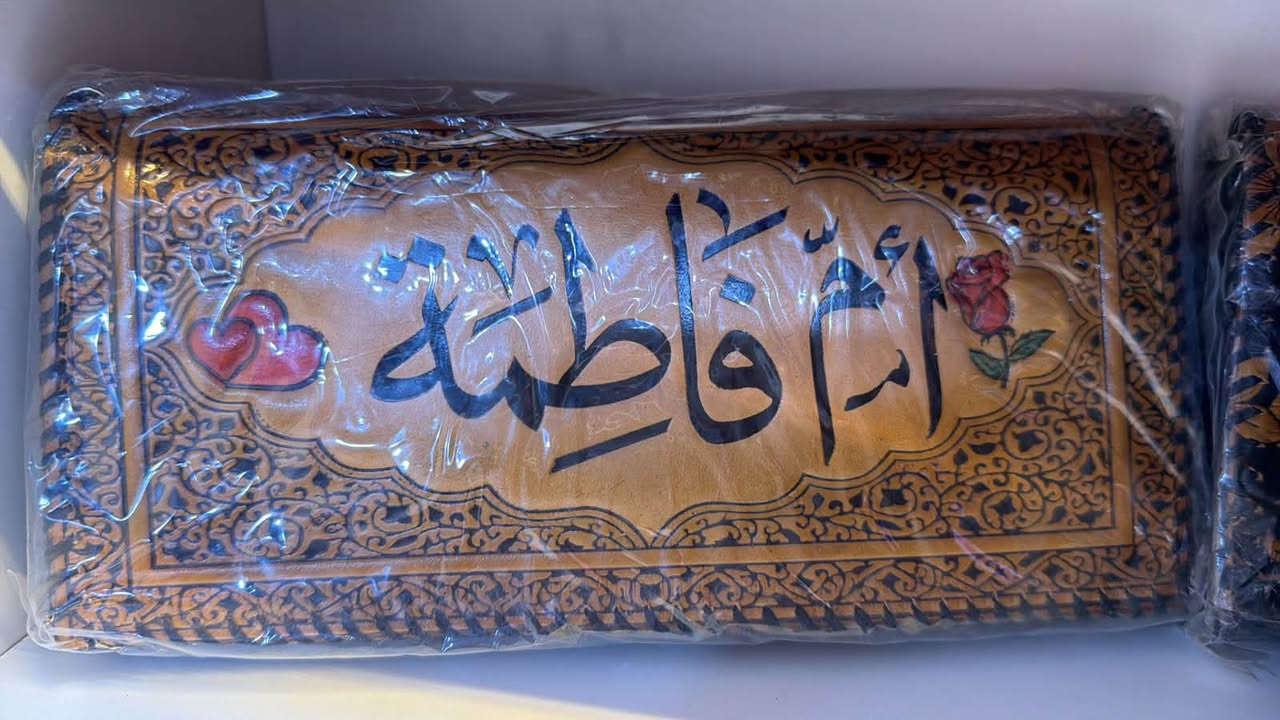 أُمّ فَاطِمَة